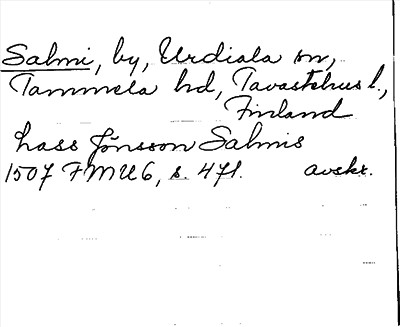 Salmi, by, Urdiala sn,
Tammela hd, Tavastehus l.,
Finland
Lass Jönsson Salmis
1507 FMU 6, s. 471. avskr.